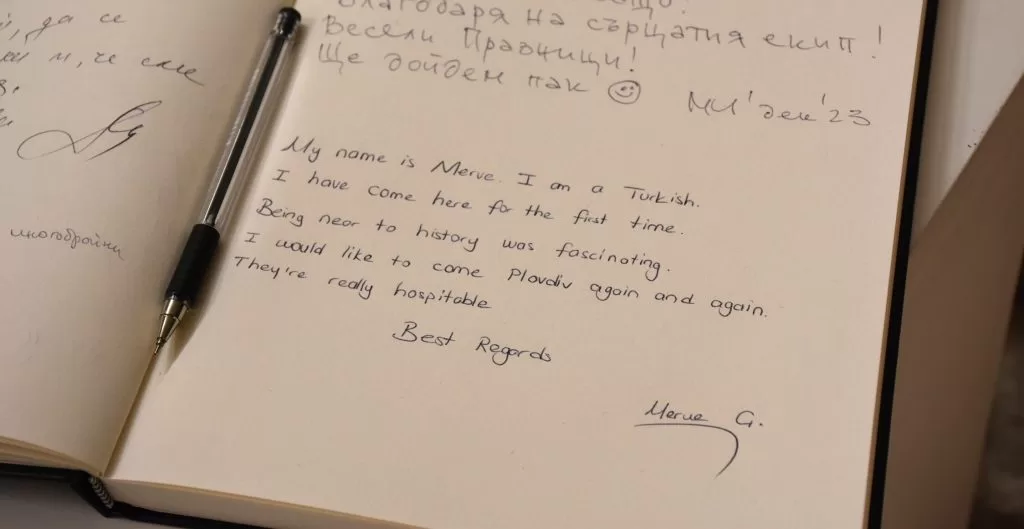 да се
м, че сме
многобройни
Благодаря на сърцатия екип!
Весели Празници!
Ще дойдем пак
дек '23
My name is Merve. I am a Turkish.
I have come here for the first time.
Being near to history was fascinating.
I would like to come Plovdiv again and again.
They're really hospitable
Best Regards
Merve G.